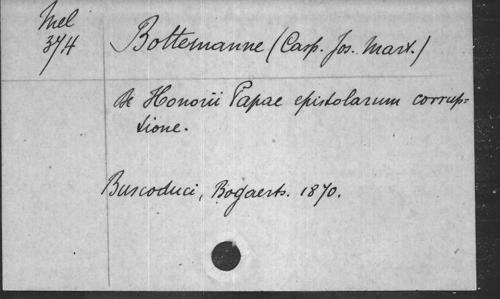 Mel
374
Bottemanne (Casp. Jos. Mart.)
de Honorii Papae epistolarum corrup=
tione.
Buscoduci, Bogaerts. 1870.